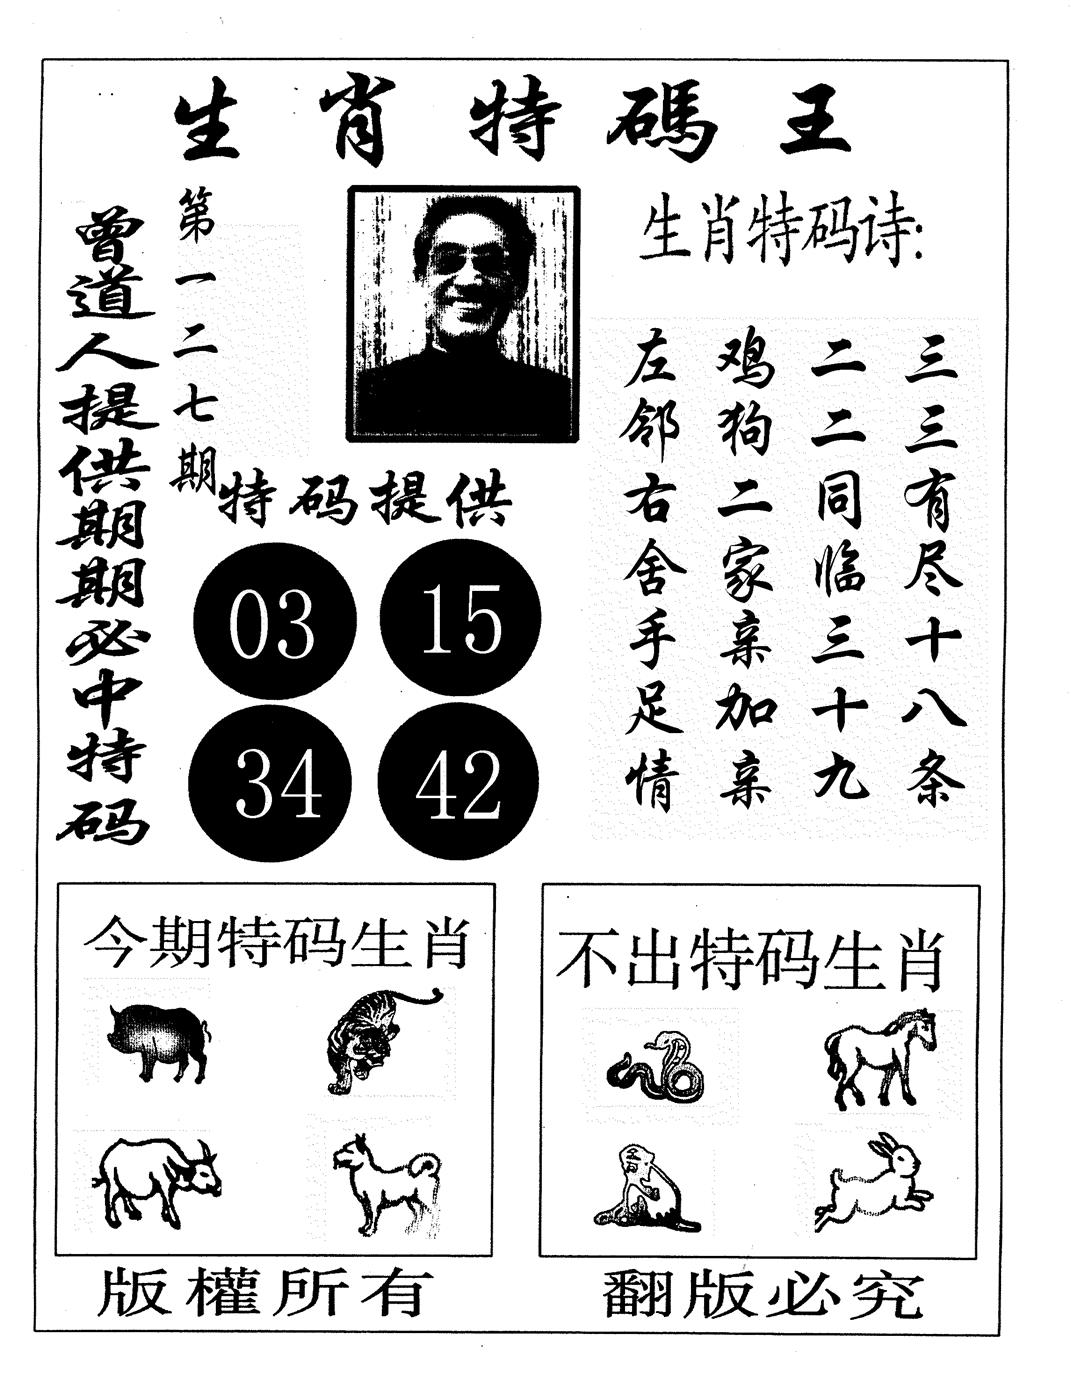 生肖特碼王
曾道人提供期期必中特码
第一二七期
生肖特码诗:
三三有尽十八条
二二同临三十九
鸡狗二家亲加亲
左邻右舍手足情
特码提供
03
15
34
42
今期特码生肖
不出特码生肖
版權所有
翻版必究